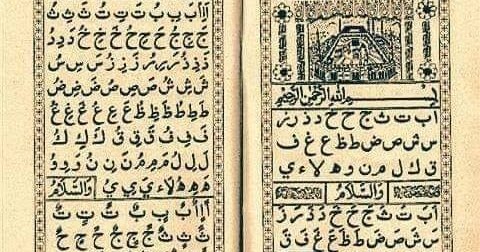 بسم الله الرحمن الرحيم
ا ب ت ث ج ح خ د ذ ر ز
س ش ص ض ط ظ ع غ ف
ق ك ل م ن و ه لا ء ي
والسلام
اَ بَ تَ ثَ جَ حَ خَ دَ ذَ رَ زَ
سَ شَ صَ ضَ طَ ظَ عَ غَ فَ قَ
اَ اِ اُ بَ بِ بُ تَ تِ تُ ثَ ثِ ثُ
جَ جِ جُ حَ حِ حُ خَ خِ خُ دَ دِ دُ
ذَ ذِ ذُ رَ رِ رُ زَ زِ زُ سَ سِ سُ
شَ شِ شُ صَ صِ صُ ضَ ضِ ضُ
طَ طِ طُ ظَ ظِ ظُ عَ عِ عُ غَ غِ غُ
فَ فِ فُ قَ قِ قُ كَ كِ كُ
لَ لِ لُ مَ مِ مُ نَ نِ نُ وَ وِ وُ
هَ هِ هُ لَا ءَ يَ يِ يُ والسلام
اً اٍ اٌ بً بٍ بٌ تً تٍ تٌ
ثً ثٍ ثٌ جً جٍ جٌ حً حٍ حٌ